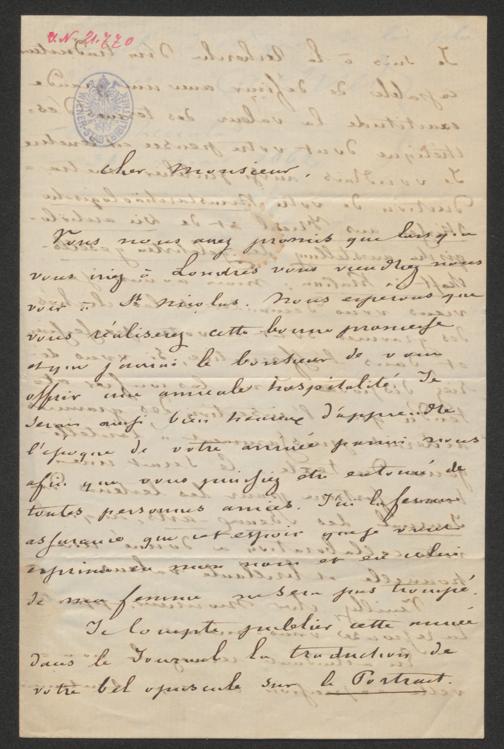 U.N. 21.770
Cher Monsieur,
Vous nous avez promis que lorsque
vous irez à Londres vous viendrez nous
voir à St Nicolas. Nous espérons que
vous réaliserez cette bonne promesse
et que j'aurai le bonheur de vous
offrir une amicale hospitalité. Je
serais aussi bien heureux d'apprendre
l'époque de votre arrivée parmi nous
afin que vous puissiez être entouré de
toutes personnes amies. J'ai la ferme
assurance que cet espoir que je vous
exprime en mon nom et en celui
de ma femme ne sera pas trompé.
Je compte publier cette année
dans le Journal la traduction de
votre bel opuscule sur le Portrait.